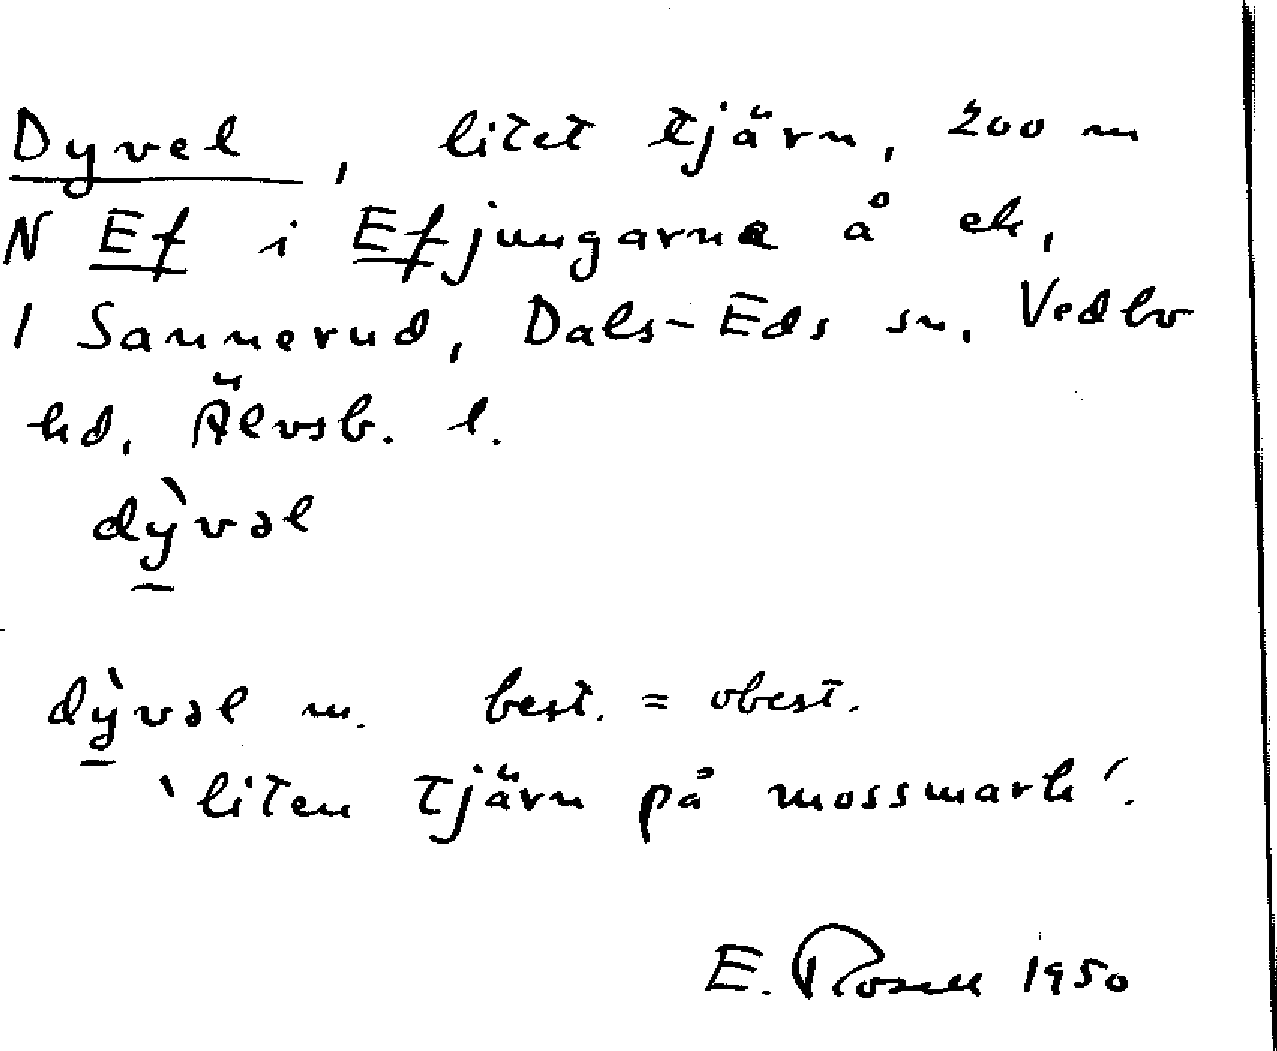 Dyvel, litet tjärn, 200 m
N Ef i Efjungarna å ek,
1 Sannerud, Dals-Eds sn. Vedbo
hd, Älvsb. l.
dỳ̠vəl
dỳ̠vəl m. best. = obest.
`liten tjärn på mossmark´.
E. Rosell 1950